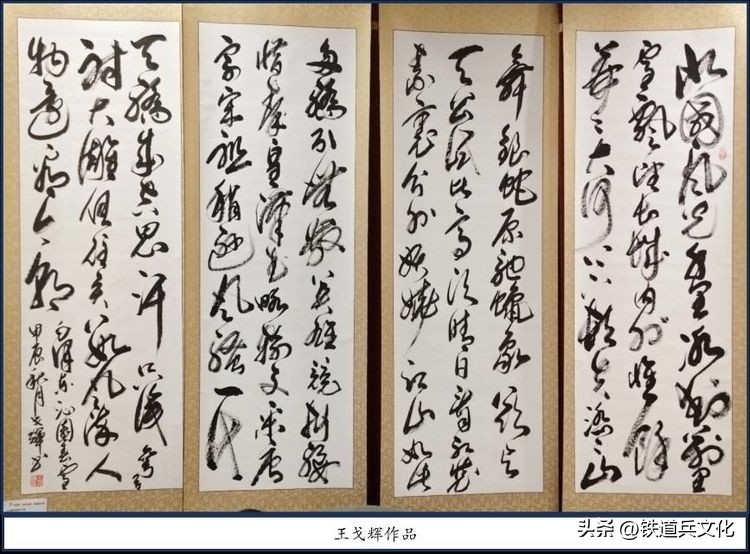 北国风光千里冰封万里
雪飘望长城内外惟馀
莽莽大河上下顿失滔滔山
舞银蛇原驰蜡象欲与
天公试比高须晴日看红装
素裹分外妖娆江山如此
多娇引无数英雄竞折腰
惜秦皇汉武略输文采唐
宗宋祖稍逊风骚一代
天骄成吉思汗只识弯弓
射大雕俱往矣数风流人
物还看今朝
毛泽东沁园春雪
甲辰秋月戈辉书
王戈辉作品
头条 @铁道兵文化